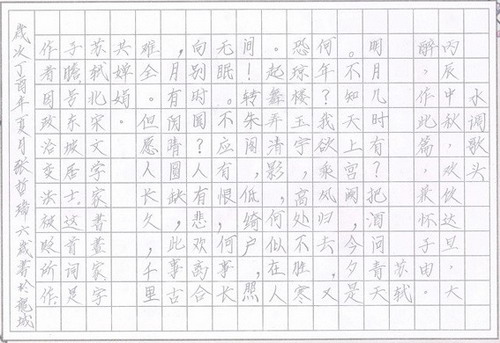 水调歌头
丙辰中秋,欢饮达旦,大
醉,作此篇,兼怀子由。
苏轼
明月几时有?把酒问青天
。不知天上宫阙,今夕是
何年?我欲乘风归去,又
恐琼楼玉宇,高处不胜寒
。起舞弄清影,何似在人
间!转朱阁,低绮户,照
无眠。不应有恨,何事长
向别时圆?人有悲欢离合
,月有阴晴圆缺,此事古
难全。但愿人长久,千里
共婵娟。
苏轼北宋文字家书画家字
子瞻号东坡居士,这首词是
作者因政治变法被贬所作
岁次丁酉年夏月张哲纬六岁书於龙城